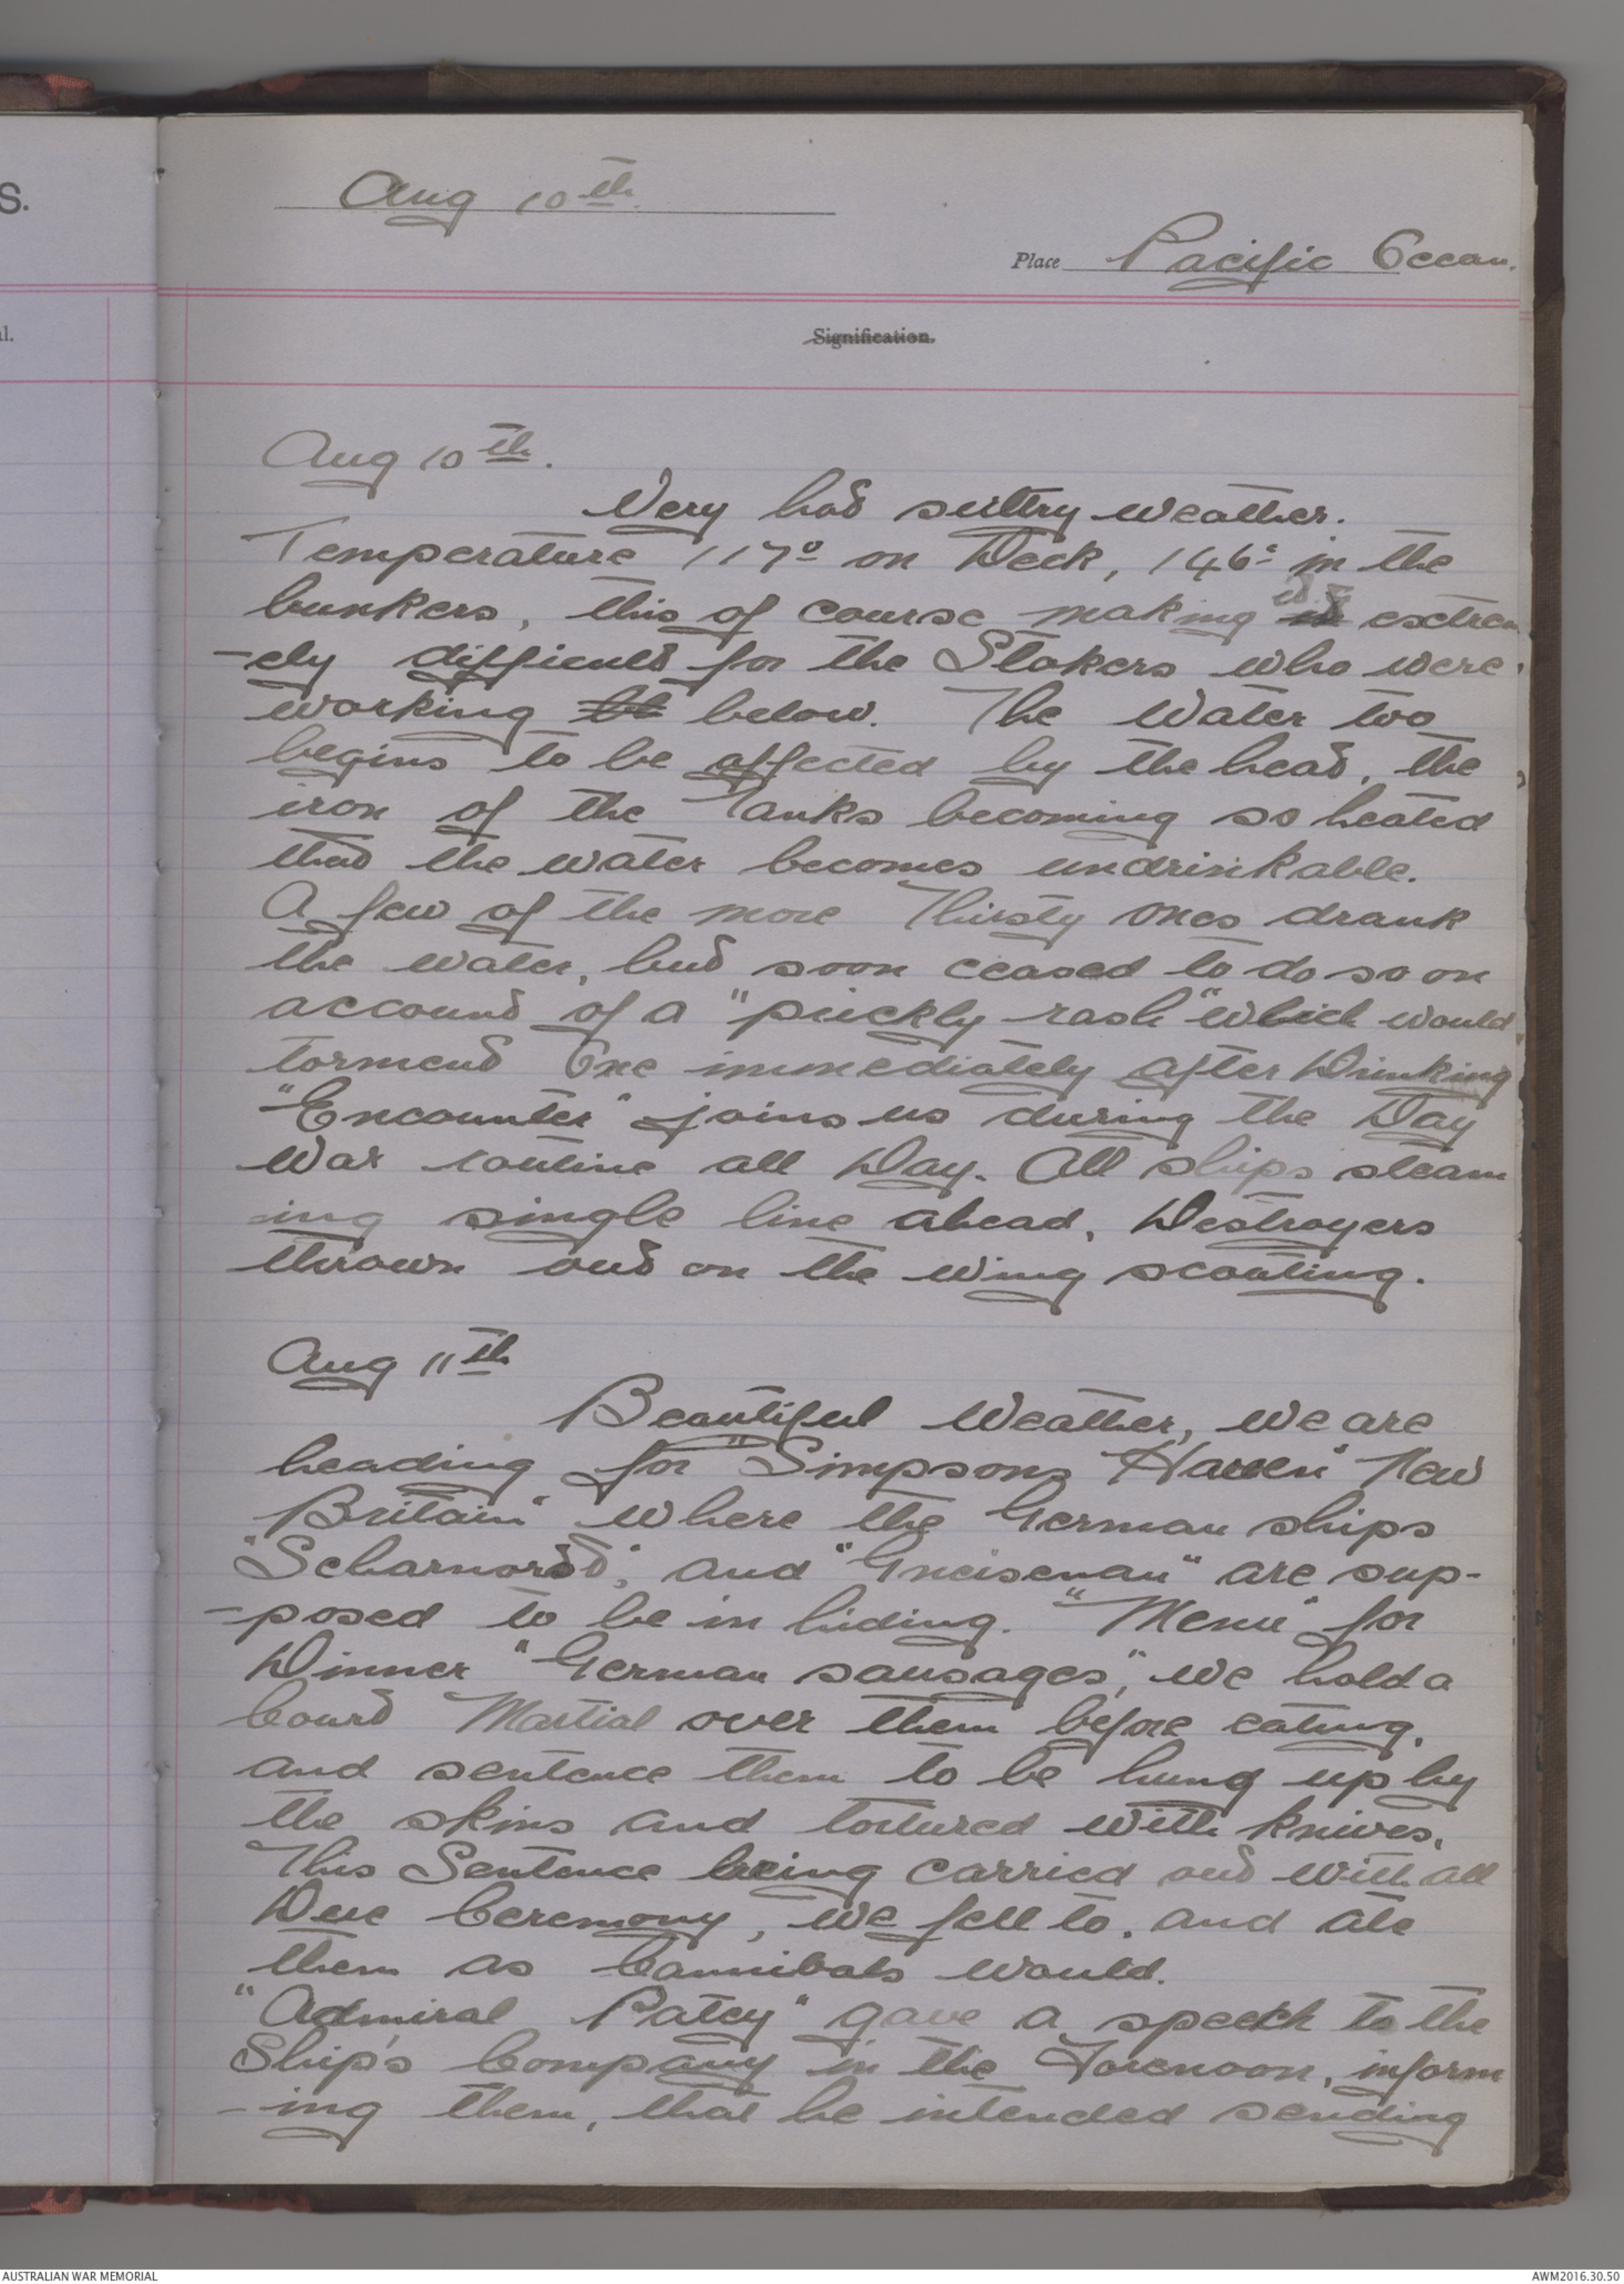 S.
l.
Aug 10th.
Place Pacific Ocean.
Signification.
Aug 10th.
Very hot sultry weather.
Temperature 117° on Deck, 146° in the
bunkers, this of course making it extrem
-ely difficult for the Stokers who were
working below. The Water too
begins to be affected by the heat, the
iron of the Tanks becoming so heated
that the water becomes undrinkable.
A few of the more Thirsty ones drank
the water, but soon ceased to do so on
account of a "prickly rash" which would
torment One immediately after Drinking
"Encounter" joins us during the Day
War routine all Day. All ships steam
-ing single line ahead, Destroyers
thrown out on the wing scouting.
Aug 11th
Beautiful Weather, we are
heading for "Simpsons Haven" New
Britain" where the German ships
"Scharnorst", and "Gneisenau" are sup-
-posed to be in hiding. "Menu" for
Dinner "German sausages," we hold a
Court Martial over them before eating,
and sentence them to be hung up by
the skins and tortured with knives.
This Sentence being carried out with all
Due Ceremony, we fell to, and ate
them as Cannibals would.
"Admiral Patey" gave a speech to the
Ship's Company in the Forenoon, inform
-ing them, that he intended sending
AUSTRALIAN WAR MEMORIAL
AWM2016.30.50